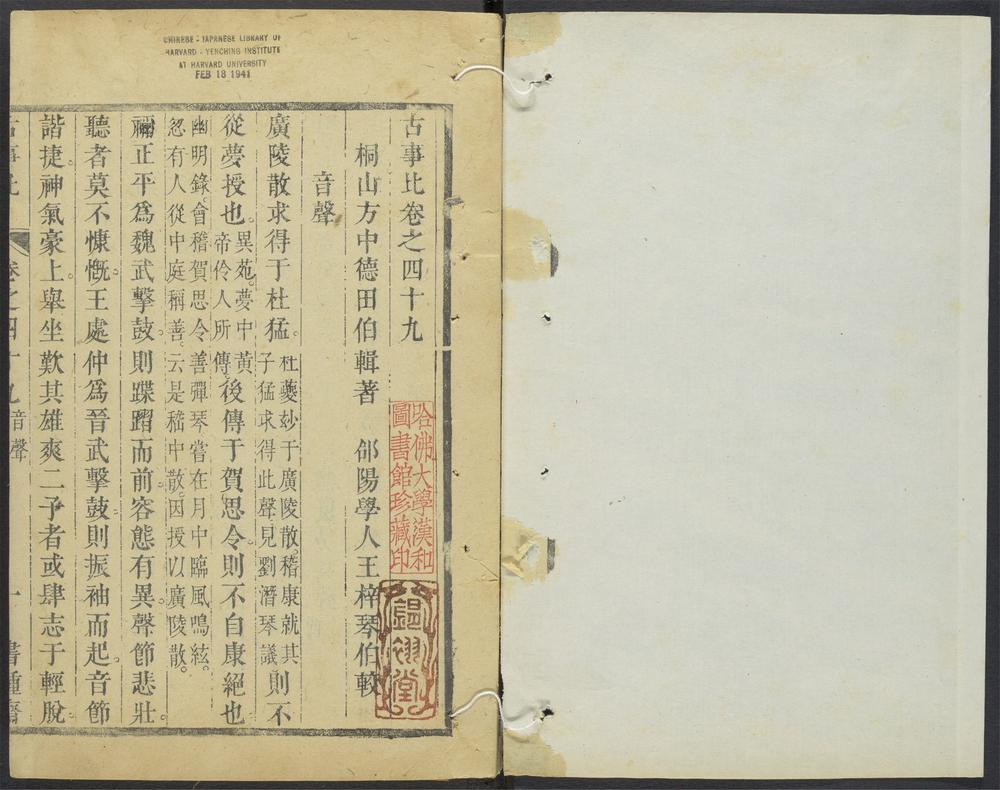 CHINESE - JAPANESE LIBRARY OF
HARVARD - YENCHING INSTITUTE
AT HARVARD UNIVERSITY
FEB 18 1941
古事比卷之四十九
桐山方中德田伯輯著　邰陽學人王梓琴伯較
音聲
廣陵散求得于杜猛。杜夔妙于廣陵散。嵇康就其
子猛求得此聲。見劉潛琴議則不
從夢授也。異苑。夢中黃
帝伶人所傳。後傳于賀思令。則不自康絕也
幽明錄。會稽賀思令善彈琴。嘗在月中臨風鳴絃。
忽有人從中庭稱善。云是嵇中散。因授以廣陵散。
禰正平爲魏武擊鼓。則蹀躧而前。容態有異。聲節悲壯。
聽者莫不慷慨。王處仲爲晉武擊鼓。則振袖而起。音節
諧捷。神氣豪上。舉坐歎其雄爽。二子者或肆志于輕脫
古事比　卷之四十九　音聲　一　書種齋
哈佛大學漢和
圖書館珍藏印